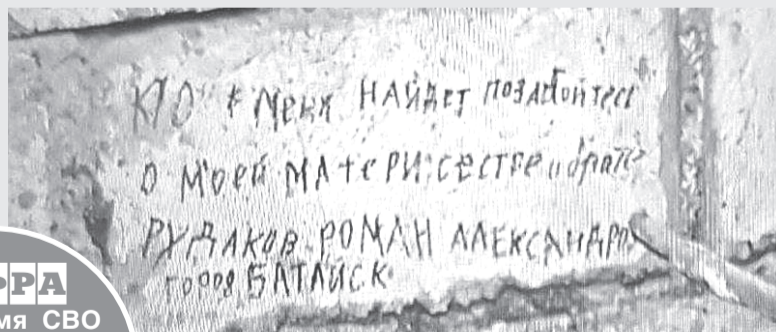 КТО меня НАйдет ПОЗАбойтесь
О моей МАтеРИ, сестре и брате
РУДАКОВ РОМАН АЛЕКСАНДРО
город БАТАЙСК
ФРА
МЯ СВО